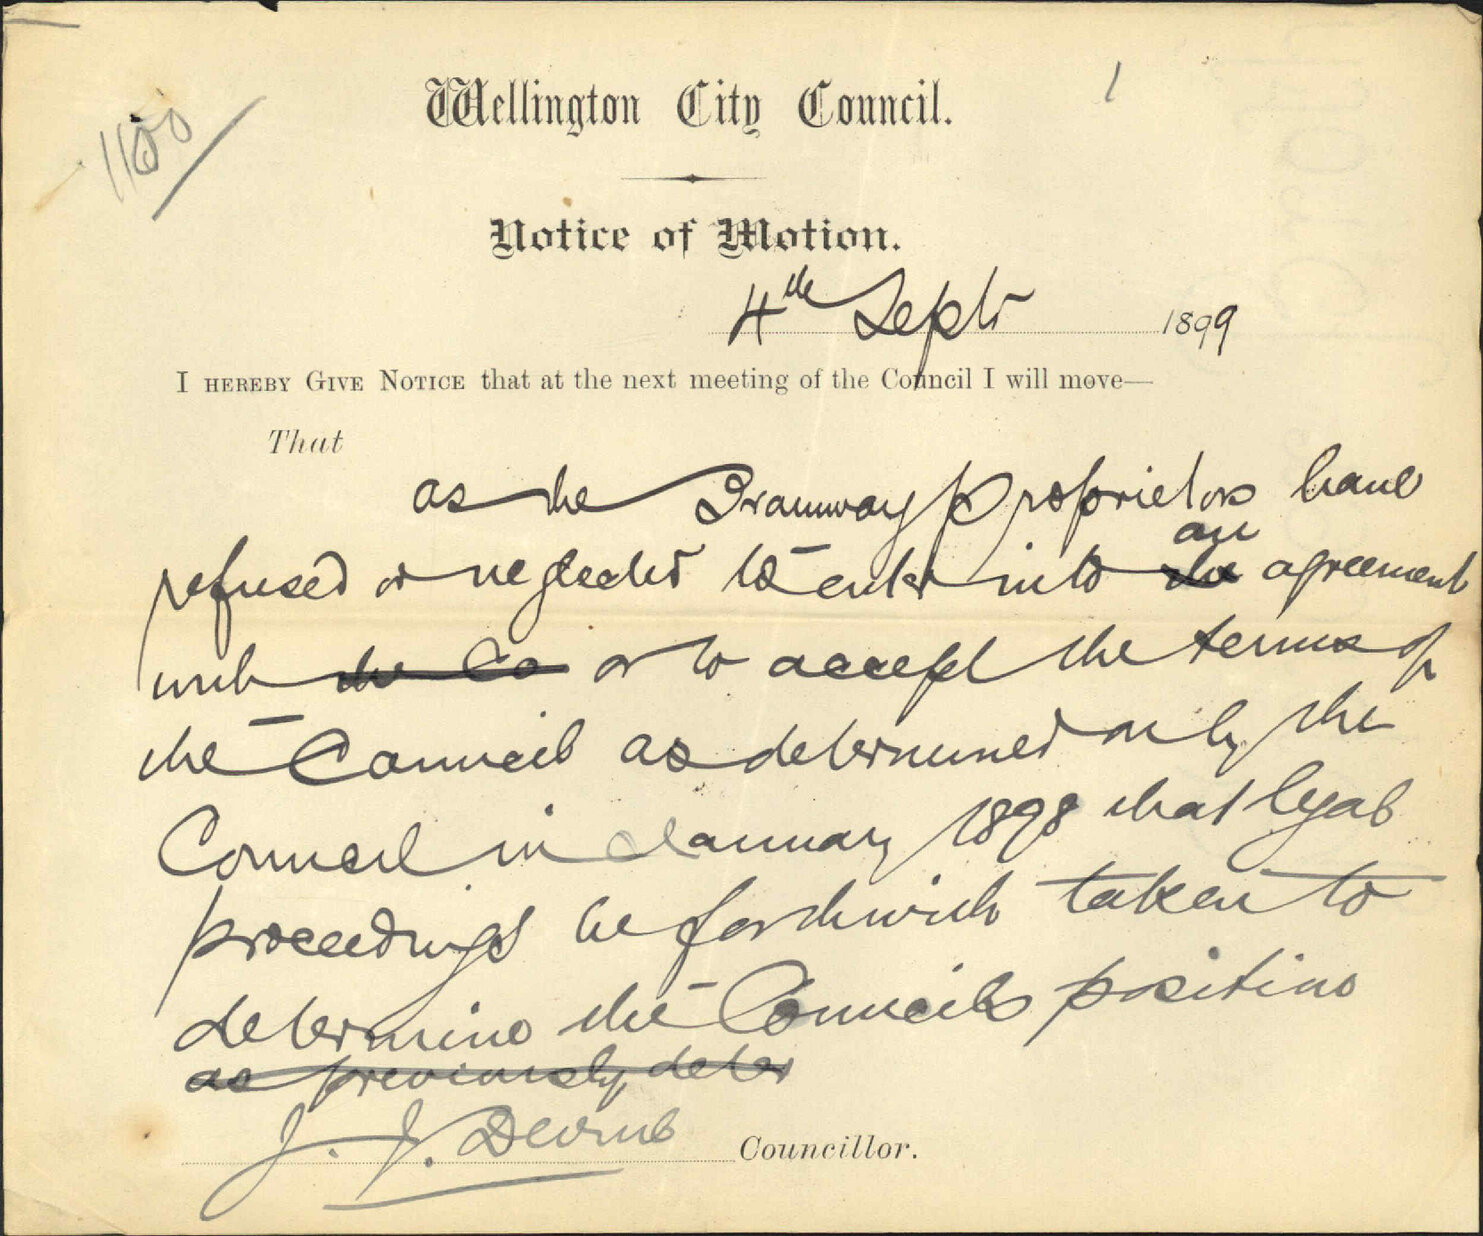 1
1150
Wellington City Council.
Notice of Motion.
4th Septr 1899
I HEREBY GIVE NOTICE that at the next meeting of the Council I will move—
That
as the Tramway Proprietors have
an
refused or neglected to enter into the agreement
with the Co or to accept the terms of
the Council as determined on by the
Council in January 1898 that legal
proceedings be forthwith taken to
determine the Councils position
as previously deter
J. J. Devine Councillor.